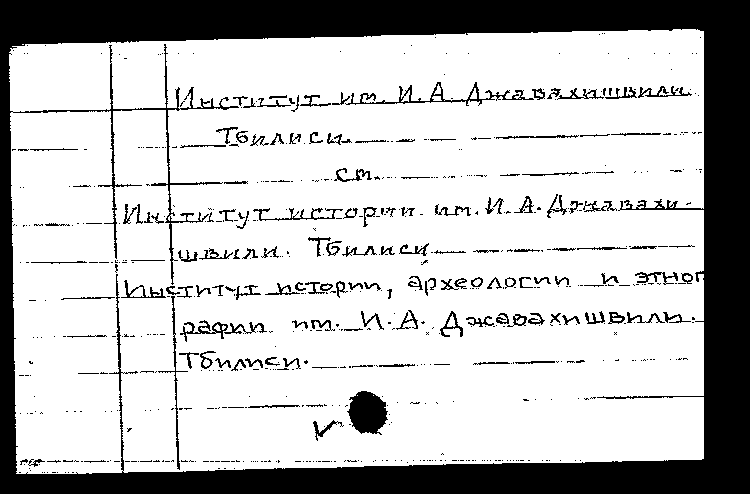 Институт им. И. А. Джавахишвили.
Тбилиси.
см.
Институт истории им. И. А. Джавахи-
швили. Тбилиси.
Институт истории, археологии и этног
рафии им. И. А. Джавахишвили.
Тбилиси.